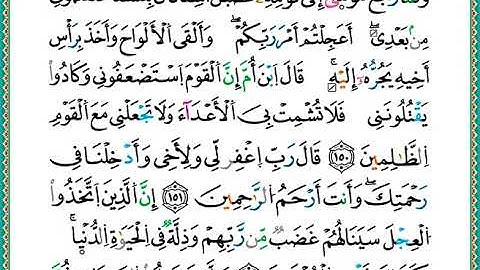 مِنۢ بَعْدِيٓ أَعَجِلْتُمْ أَمْرَ رَبِّكُمْ وَأَلْقَى الْأَلْوَاحَ وَأَخَذَ بِرَأْسِ
أَخِيهِ يَجُرُّهُۥٓ إِلَيْهِ قَالَ ابْنَ أُمَّ إِنَّ الْقَوْمَ اسْتَضْعَفُونِي وَكَادُوا
يَقْتُلُونَنِي فَلَا تُشْمِتْ بِيَ الْأَعْدَآءَ وَلَا تَجْعَلْنِي مَعَ الْقَوْمِ
الظَّٰلِمِينَ ١٥٠ قَالَ رَبِّ اغْفِرْ لِي وَلِأَخِي وَأَدْخِلْنَا فِي
رَحْمَتِكَ وَأَنتَ أَرْحَمُ الرَّٰحِمِينَ ١٥١ إِنَّ الَّذِينَ اتَّخَذُوا
الْعِجْلَ سَيَنَالُهُمْ غَضَبٌ مِّن رَّبِّهِمْ وَذِلَّةٌ فِي الْحَيَوٰةِ الدُّنْيَا